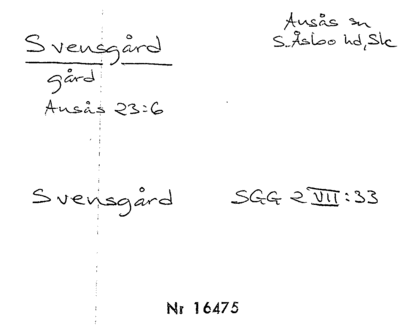 Svensgård
gård
Ausås 23:6
Ausås sn
S. Åsbo hd, Sk
Svensgård SGG 2 VII:33
Nr 16475